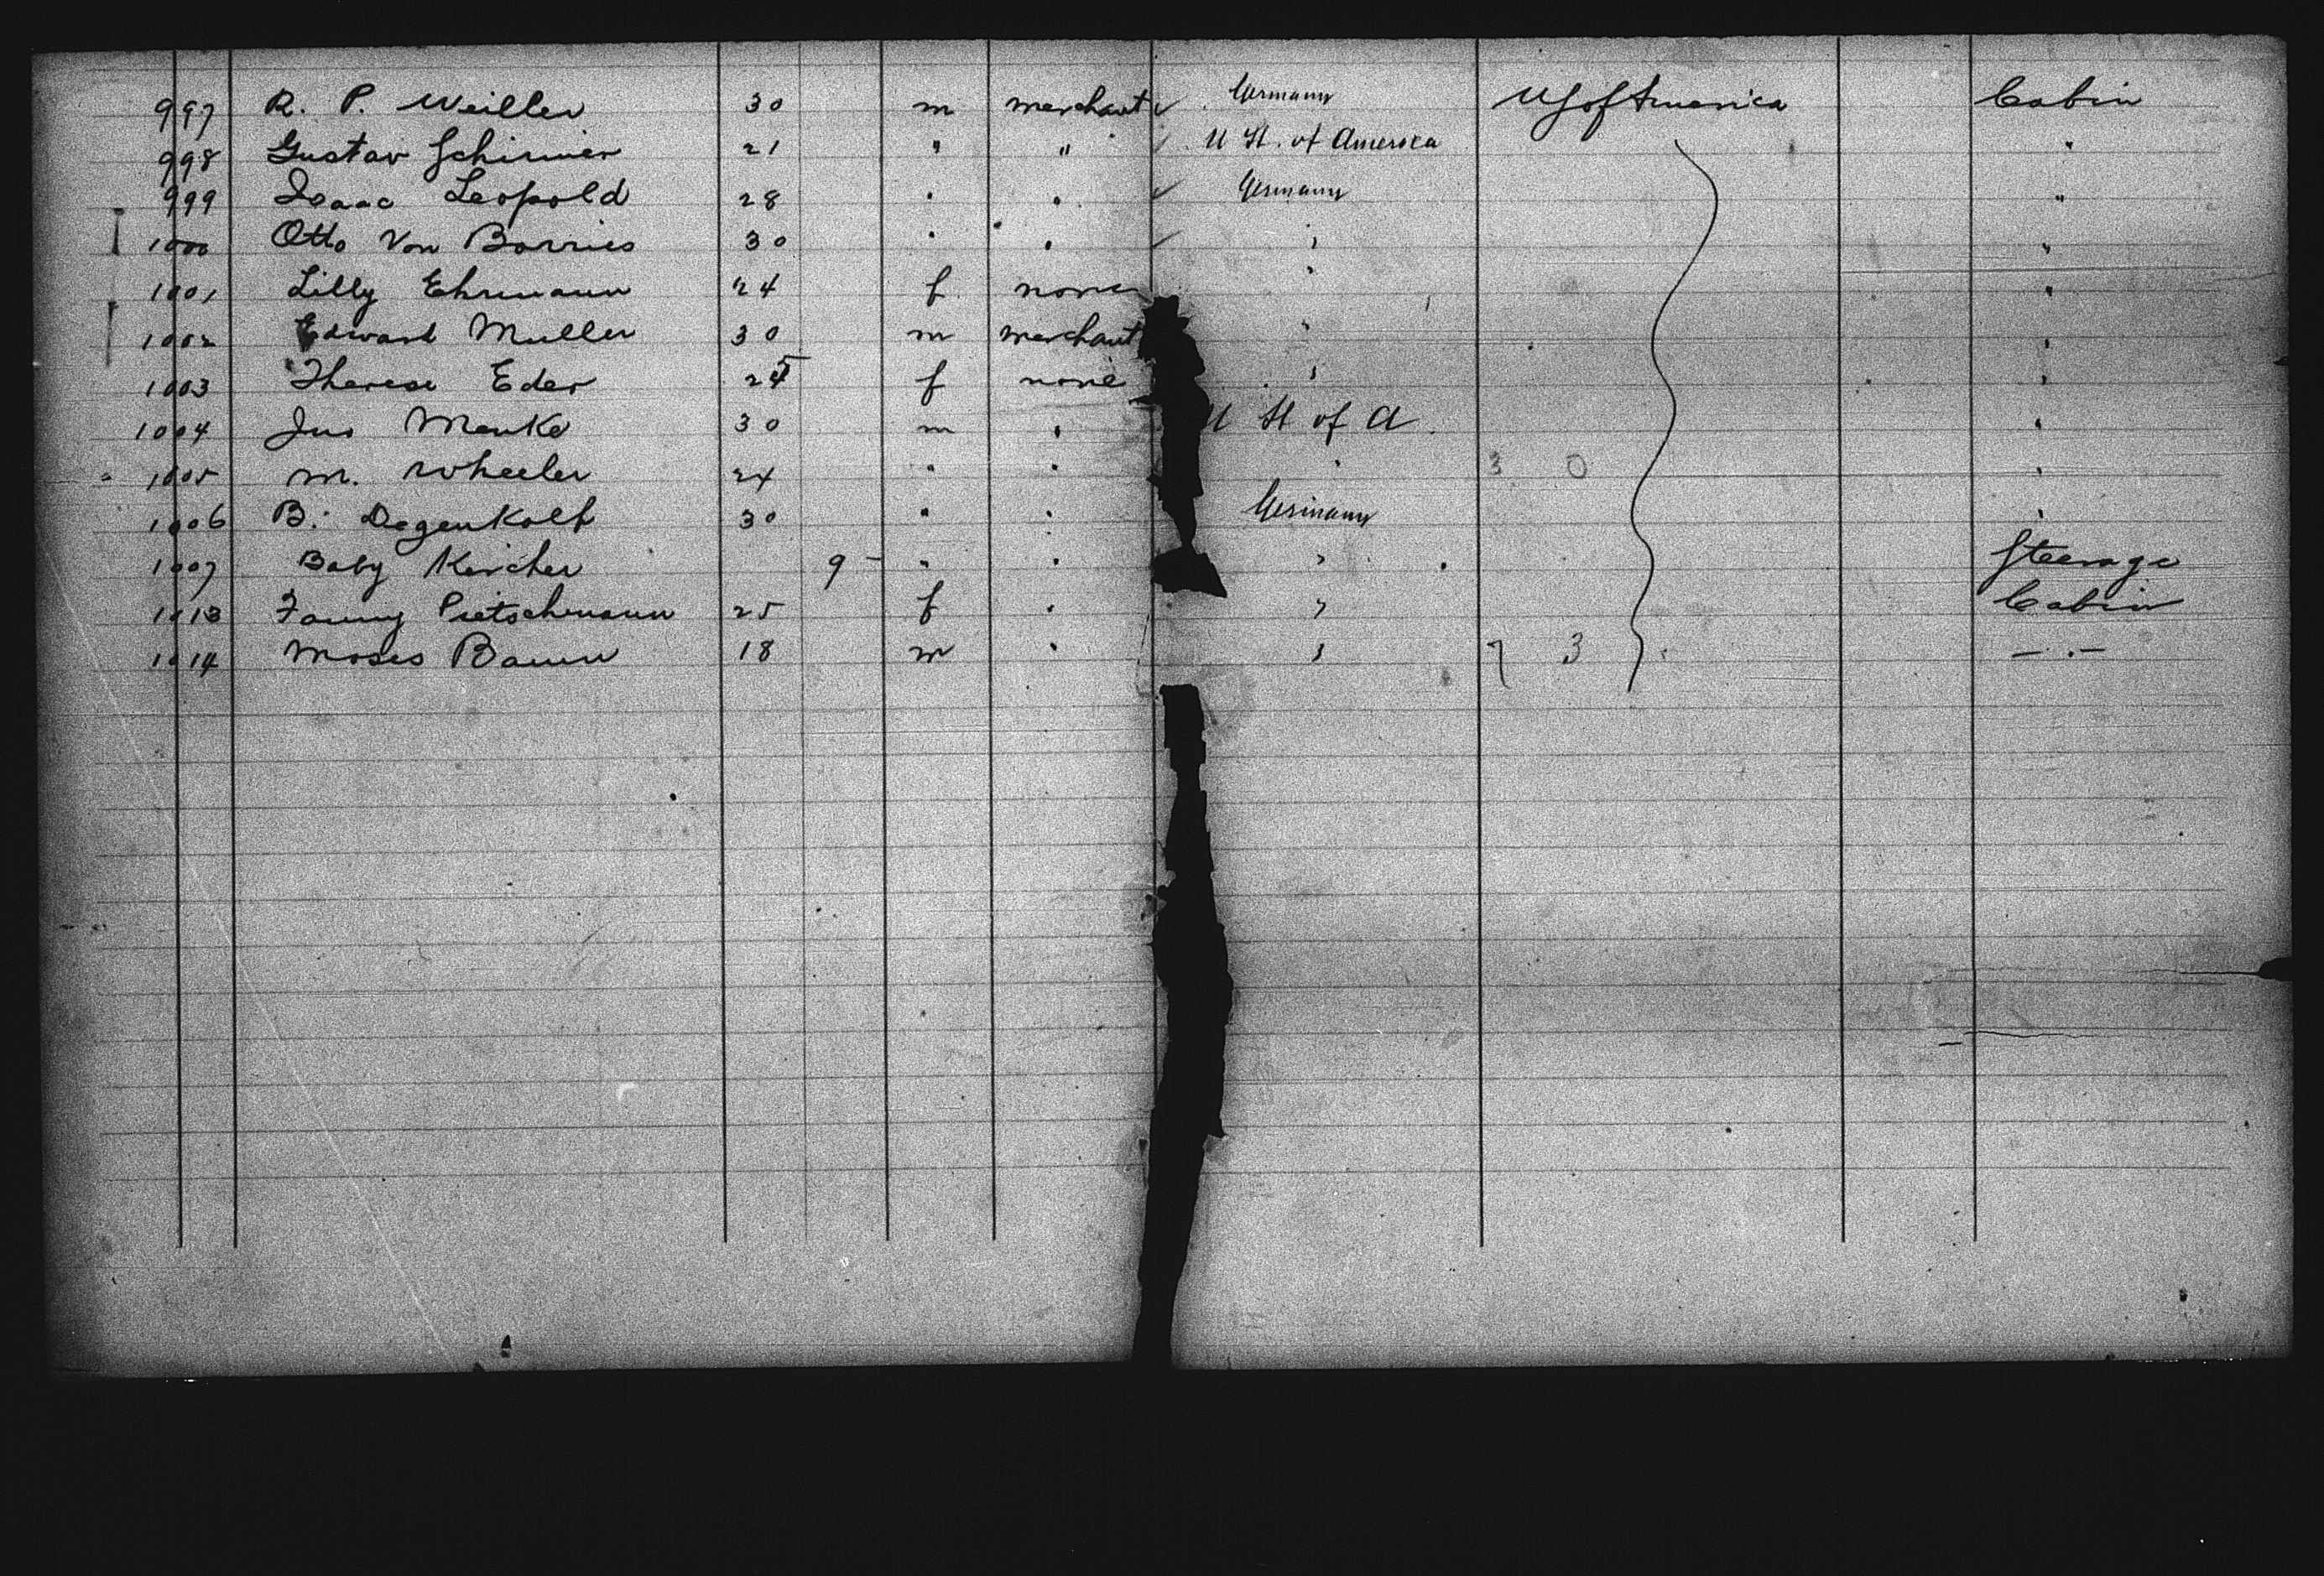 997 R. P. Weiller 30 m merchant ✓ Germany U S of America Cabin
998 Gustav Schirmer 21 " " ✓ U St. of America "
999 Isaac Leopold 28 " " ✓ Germany "
1000 Otto Von Borries 30 " " ✓ " "
1001 Lilly Ehrmann 24 f none " "
1002 Edward Muller 30 m merchant " "
1003 Therese Eder 25 f none " "
1004 Menke 30 m " U St of A. "
1005 M. Wheeler 24 " " " 3 0 "
1006 B. Degenkolb 30 " " Germany "
1007 Baby Kircher 9 - " " " Steerage
1013 Fanny Pietschmann 25 f " " Cabin
1014 Moses Baum 18 m " " 7 3 — . —